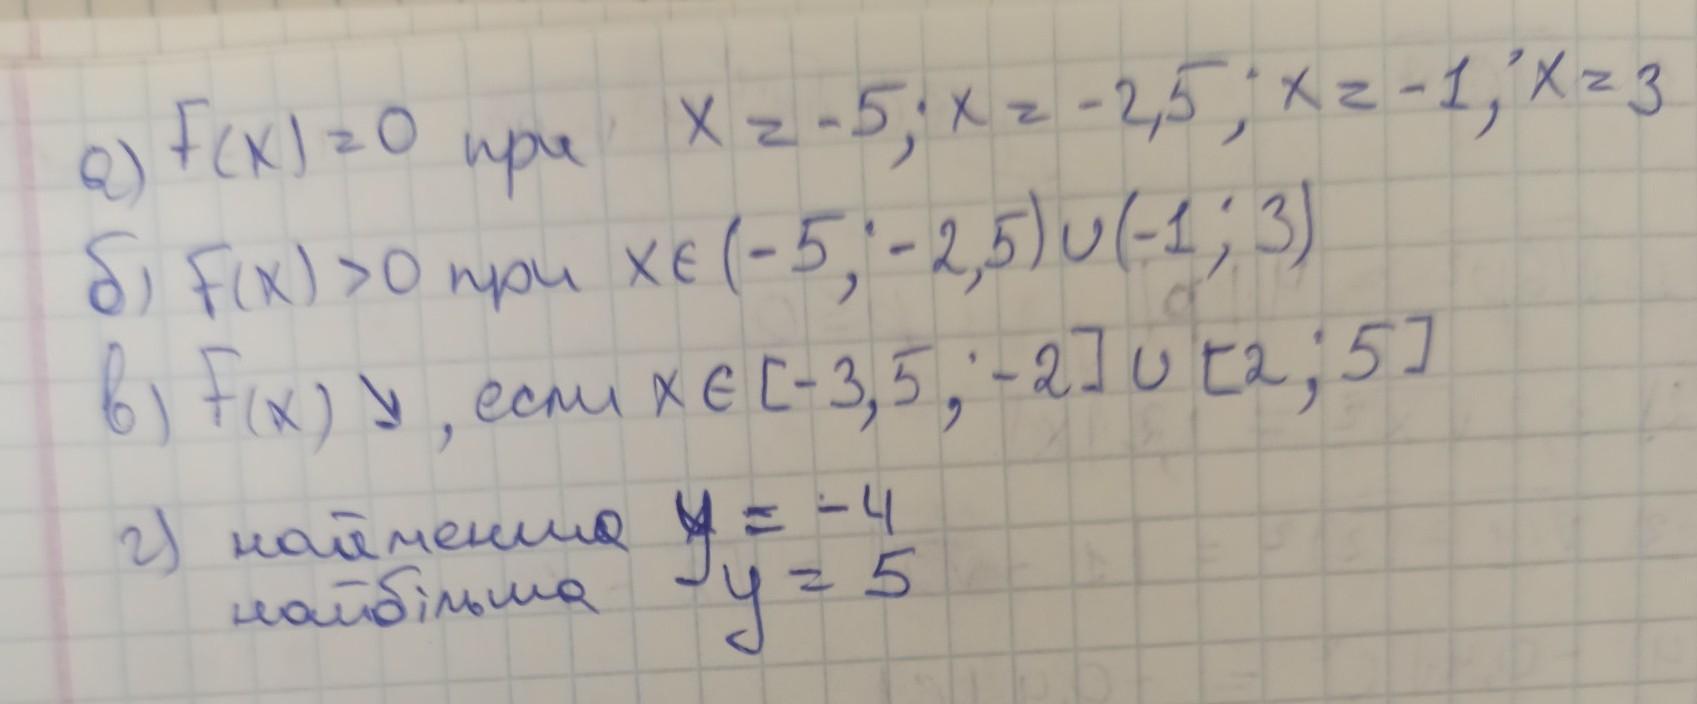 а) F(x) = 0 при x = -5; x = -2,5; x = -1; x = 3
б) F(x) > 0 при x ∈ (-5; -2,5) ∪ (-1; 3)
в) F(x) ↘, если x ∈ [-3,5; -2] ∪ [2; 5]
г) найменша y = -4
найбільша y = 5